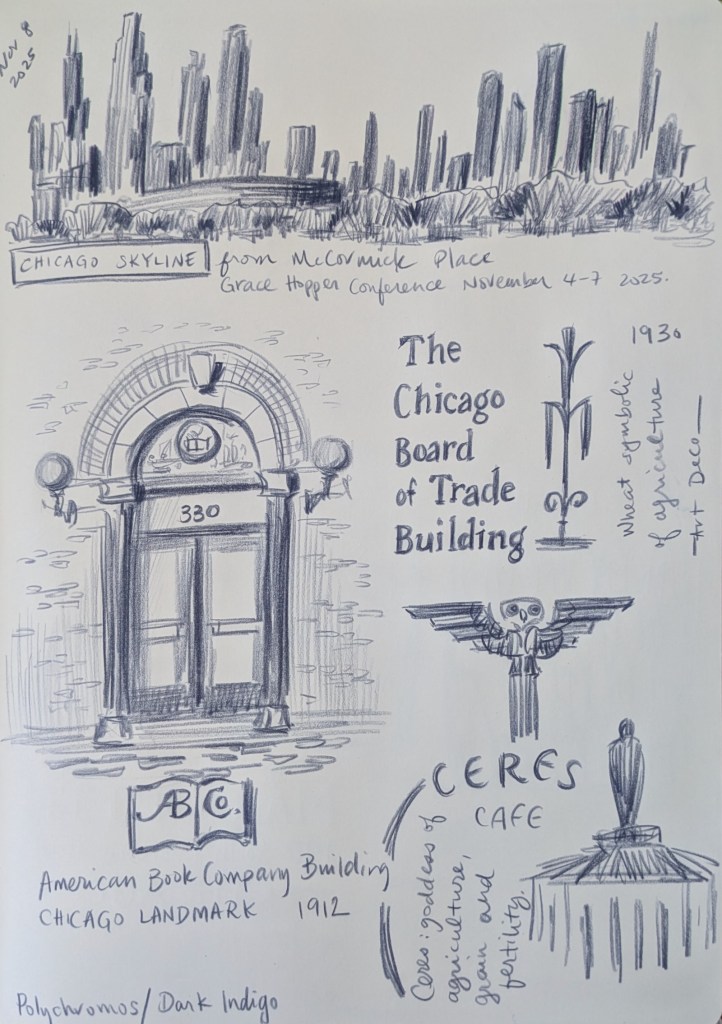 Nov 8
2025
CHICAGO SKYLINE from McCormick Place
Grace Hopper Conference November 4-7 2025.
330
The
Chicago
Board
of Trade
Building
1930
Wheat symbolic
of agriculture
- Art Deco -
ABCo.
American Book Company Building
CHICAGO LANDMARK 1912
CERES
CAFE
Ceres: goddess of
agriculture,
grain and
fertility.
Polychromos/Dark Indigo